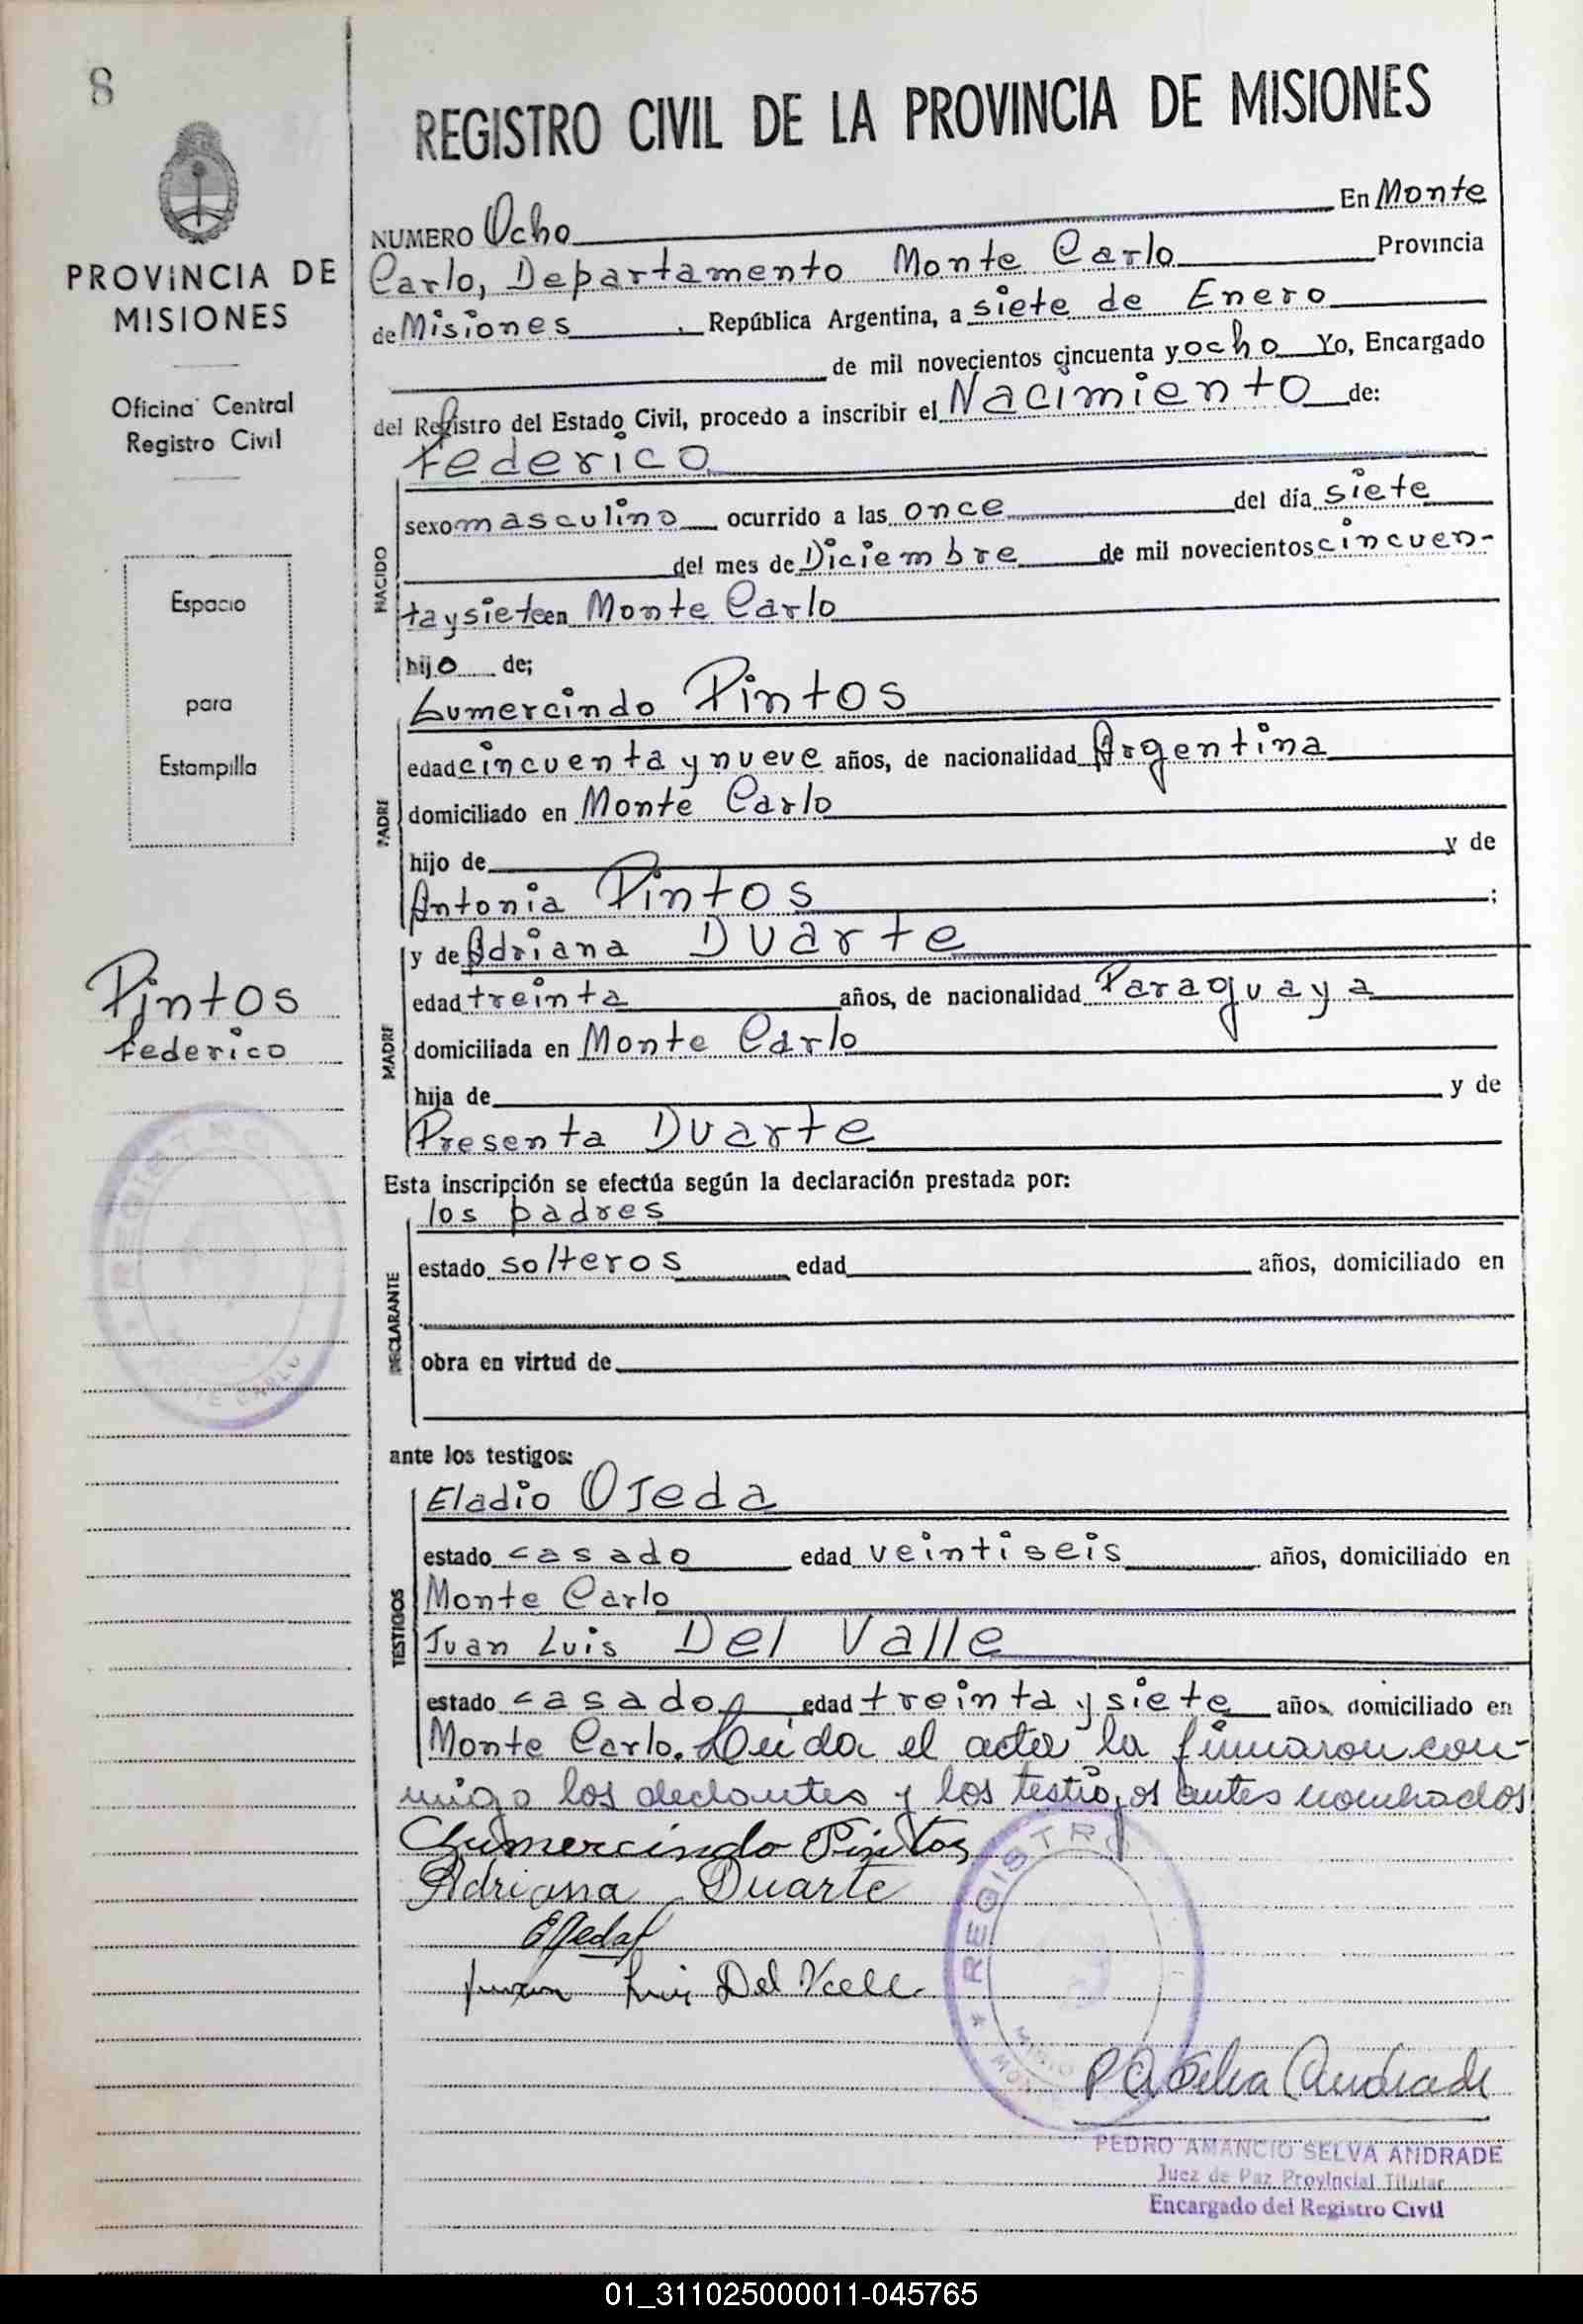 8
PROVINCIA DE
MISIONES
Oficina Central
Registro Civil
Espacio
para
Estampilla
Pintos
Federico
REGISTRO CIVIL DE LA PROVINCIA DE MISIONES
NUMERO Ocho En Monte
Carlo, Departamento Monte Carlo Provincia
de Misiones, República Argentina, a siete de Enero
de mil novecientos cincuenta y ocho Yo, Encargado
del Registro del Estado Civil, procedo a inscribir el Nacimiento de:
Federico
NACIDO
sexo masculino ocurrido a las once del día siete
del mes de Diciembre de mil novecientos cincuen-
ta y siete en Monte Carlo
hijo de;
Lumercindo Pintos
PADRE
edad cincuenta y nueve años, de nacionalidad Argentina
domiciliado en Monte Carlo
hijo de y de
Antonia Pintos ;
y de Adriana Duarte
MADRE
edad treinta años, de nacionalidad Paraguaya
domiciliada en Monte Carlo
hija de y de
Presenta Duarte
Esta inscripción se efectúa según la declaración prestada por:
los padres
DECLARANTE
estado solteros edad años, domiciliado en
obra en virtud de
ante los testigos:
Eladio Ojeda
TESTIGOS
estado casado edad veintiseis años, domiciliado en
Monte Carlo
Juan Luis Del Valle
estado casado edad treinta y siete años, domiciliado en
Monte Carlo. Leida el acta la firmaron con-
migo los declantes y los testigos antes nombrados
Lumercindo Pintos
Adriana Duarte
EOjeda
Juan Luis Del Valle
REGISTRO
PASelva Andrade
PEDRO AMANCIO SELVA ANDRADE
Juez de Paz Provincial Titular
Encargado del Registro Civil
01_311025000011-045765